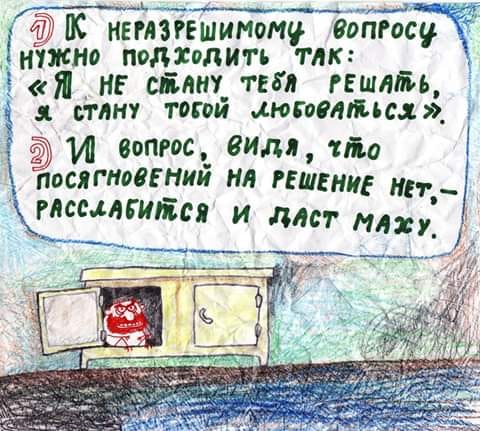 1) К НЕРАЗРЕШИМОМУ ВОПРОСУ
НУЖНО ПОДХОДИТЬ ТАК:
«Я НЕ СТАНУ ТЕБЯ РЕШАТЬ,
Я СТАНУ ТОБОЙ ЛЮБОВАТЬСЯ».
2) И ВОПРОС, ВИДЯ, ЧТО
ПОСЯГНОВЕНИЙ НА РЕШЕНИЕ НЕТ,-
РАССЛАБИТСЯ И ДАСТ МАХУ.